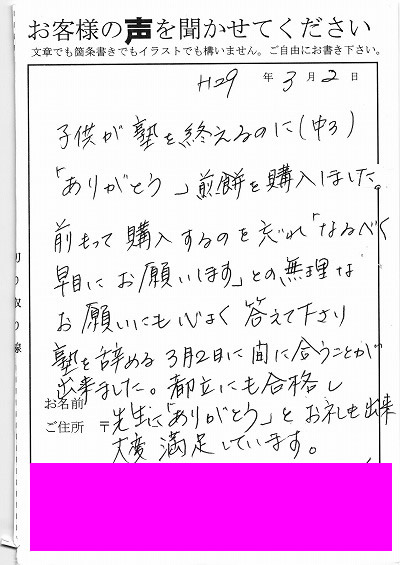 お客様の声を聞かせてください
文章でも箇条書きでもイラストでも構いません。ご自由にお書き下さい。
H29 年 3 月 2 日
子供が塾を終えるのに(中3)
「ありがとう」煎餅を購入しました。
前もって購入するのを忘れ「なるべく
早目にお願いします」との無理な
お願いにも心よく答えて下さり
塾を辞める3月2日に間に合うことが
出来ました。都立にも合格し
お名前
先生に「ありがとう」とお礼も出来
ご住所 〒
大変満足しています。
切り取り線